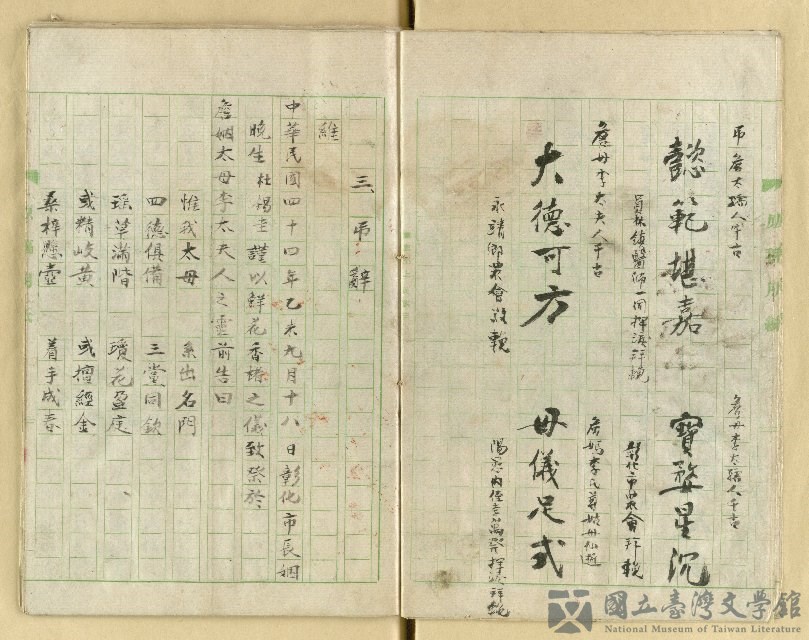 弔詹太孺人千古
懿範堪嘉
員林鎮醫師一同揮淚拜輓
詹母李太夫人千古
大德可方
永靖鄉農會敬輓
詹母李太孺人千古
寶婺星沉
彰化市農會拜輓
母儀足式
三、弔辭
維
中華民國四十四年乙未九月十八日彰化市長姻
晚生杜錫圭謹以鮮花香楮之儀致祭於
詹姻太母李太夫人之靈前告曰
惟我太母 系出名門
四德俱備 三黨同欽
瑤草滿階 瓊花盈庭、
或精岐黃 或擅經金
桑梓懸壺 着手成春
國立臺灣文學館
National Museum of Taiwan Literature